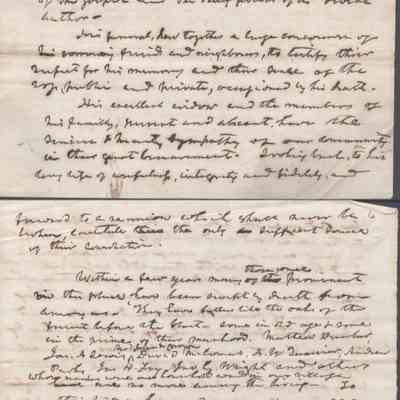 of the gospel and the
author.
His funeral, drew together a large concourse of
his sorrowing friends and neighbours, to testify their
respect for his memory and their sense of the
loss, public and private, occasioned by his death.
His excellent widow and the members of
his family, present and absent, have the
sincere & hearty sympathy of our community
in their great bereavement. Looking back, to his
long life of usefulness, integrity and fidelity, and
forward to a reunion which shall never be
broken, constitute the only sufficient source
of their consolation.
Within a few years many of the prominent
those once
in this place have been swept by death from
among us. They have fallen like the oaks of the
forest before the blast. some in old age & some
in the prime of their manhood. Matthew
Jas. A. Lewis, David McComas, A. W. Quarrier, Andrew
Parks, Jas. H. Wright and others
whose names were once household words in our village
are no more among the living. In